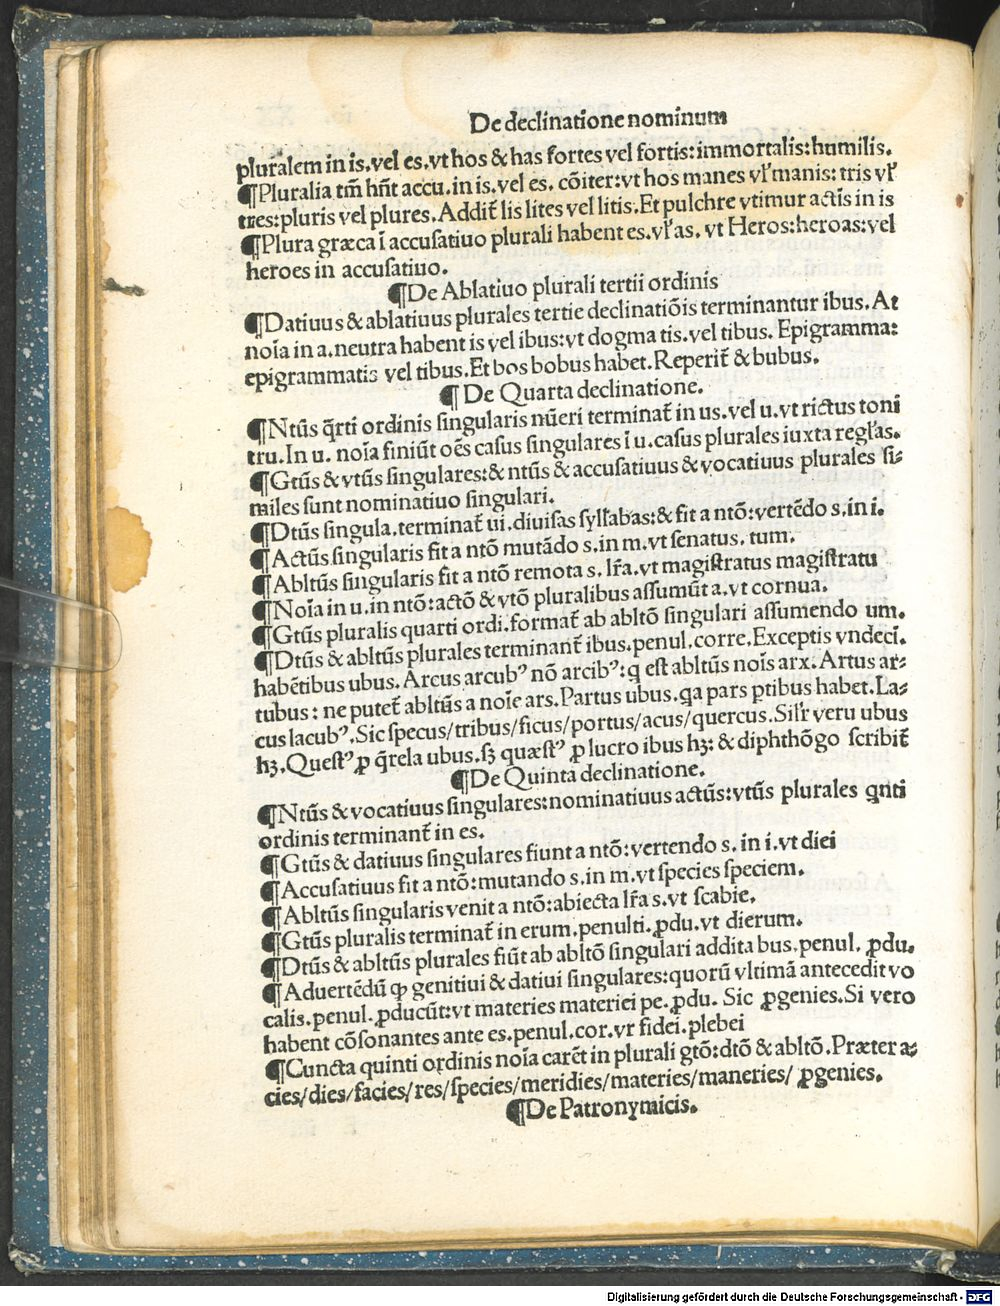 De declinatione nominum
pluralem in is.vel es.vt hos & has fortes vel fortis:immortalis:humilis.
¶Pluralia tm̄ hn̄t accu.in is.vel es. cōiter:vt hos manes vl̓ manis: tris vl̓
tres:pluris vel plures.Addit̄ lis lites vel litis.Et pulchre vtimur actīs in is
¶Plura græca ī accusatiuo plurali habent es.vl̓ as. vt Heros:heroas:vel
heroes in accusatiuo.
¶De Ablatiuo plurali tertii ordinis
¶Datiuus & ablatiuus plurales tertie declinatiōis terminantur ibus. At
noīa in a.neutra habent is vel ibus:vt dogma tis.vel tibus. Epigramma:
epigrammatis vel tibus.Et bos bobus habet.Reperit̄ & bubus.
¶ De Quarta declinatione.
¶Ntūs q̄rti ordinis singularis nūeri terminat̄ in us.vel u.vt rictus toni
tru.In u. noīa finiūt oēs casus singulares ī u.casus plurales iuxta regl̓as.
¶Gtūs & vtūs singulares:& ntūs & accusatiuus & vocatiuus plurales si⸗
miles sunt nominatiuo singulari.
¶Dtūs singula.terminat̄ ui.diuisas syll̓abas:& fit a ntō:vertēdo s.in i.
¶Actūs singularis fit a ntō mutādo s.in m.vt senatus. tum.
¶Abltūs singularis fit a ntō remota s. lr̄a.vt magistratus magistratu
¶Noīa in u.in ntō:actō & vtō pluralibus assumūt a.vt cornua.
¶Gtūs pluralis quarti ordi.format̄ ab abltō singulari assumendo um.
¶Dtūs & abltūs plurales terminant̄ ibus.penul.corre.Exceptis vndecī.
habētibus ubus. Arcus arcubꝰ nō arcibꝰ:ꝗ est abltūs noīs arx. Artus ar⸗
tubus: ne putet̄ abltūs a noīe ars.Partus ubus.ꝗa pars ꝑtibus habet.La⸗
cus lacubꝰ.Sic specus/tribus/ficus/portus/acus/quercus.Sil̓r veru ubus
hꝫ.Questꝰ ꝓ q̄rela ubus.sꝫ quæstꝰ ꝓ lucro ibus hꝫ: & diphthōgo scribit̄
¶De Quinta declinatione.
¶Ntūs & vocatiuus singulares:nominatiuus actūs:vtūs plurales ꝗnti
ordinis terminant̄ in es.
¶Gtūs & datiuus singulares fiunt a ntō:vertendo s. in i.vt diei
¶Accusatiuus fit a ntō:mutando s.in m.vt species speciem.
¶Abltūs singularis venit a ntō:abiecta lr̄a s.vt scabie.
¶Gtūs pluralis terminat̄ in erum.penulti.ꝓdu.vt dierum.
¶Dtūs & abltūs plurales fiūt ab abltō singulari addita bus.penul. ꝓdu.
¶Aduertēdū ꝙ genitiui & datiui singulares:quorū vltimā antecedit vo
calis.penul.ꝓducūt:vt materies materiei pe.ꝓdu. Sic ꝓgenies.Si vero
habent cōsonantes ante es.penul.cor.vr fidei.plebei
¶Cuncta quinti ordinis noīa carēt in plurali gtō:dtō & abltō.Præter a⸗
cies/dies/facies/res/species/meridies/materies/maneries/ ꝓgenies.
¶De Patronymicis.
Digitalisierung gefördert durch die Deutsche Forschungsgemeinschaft - DFG